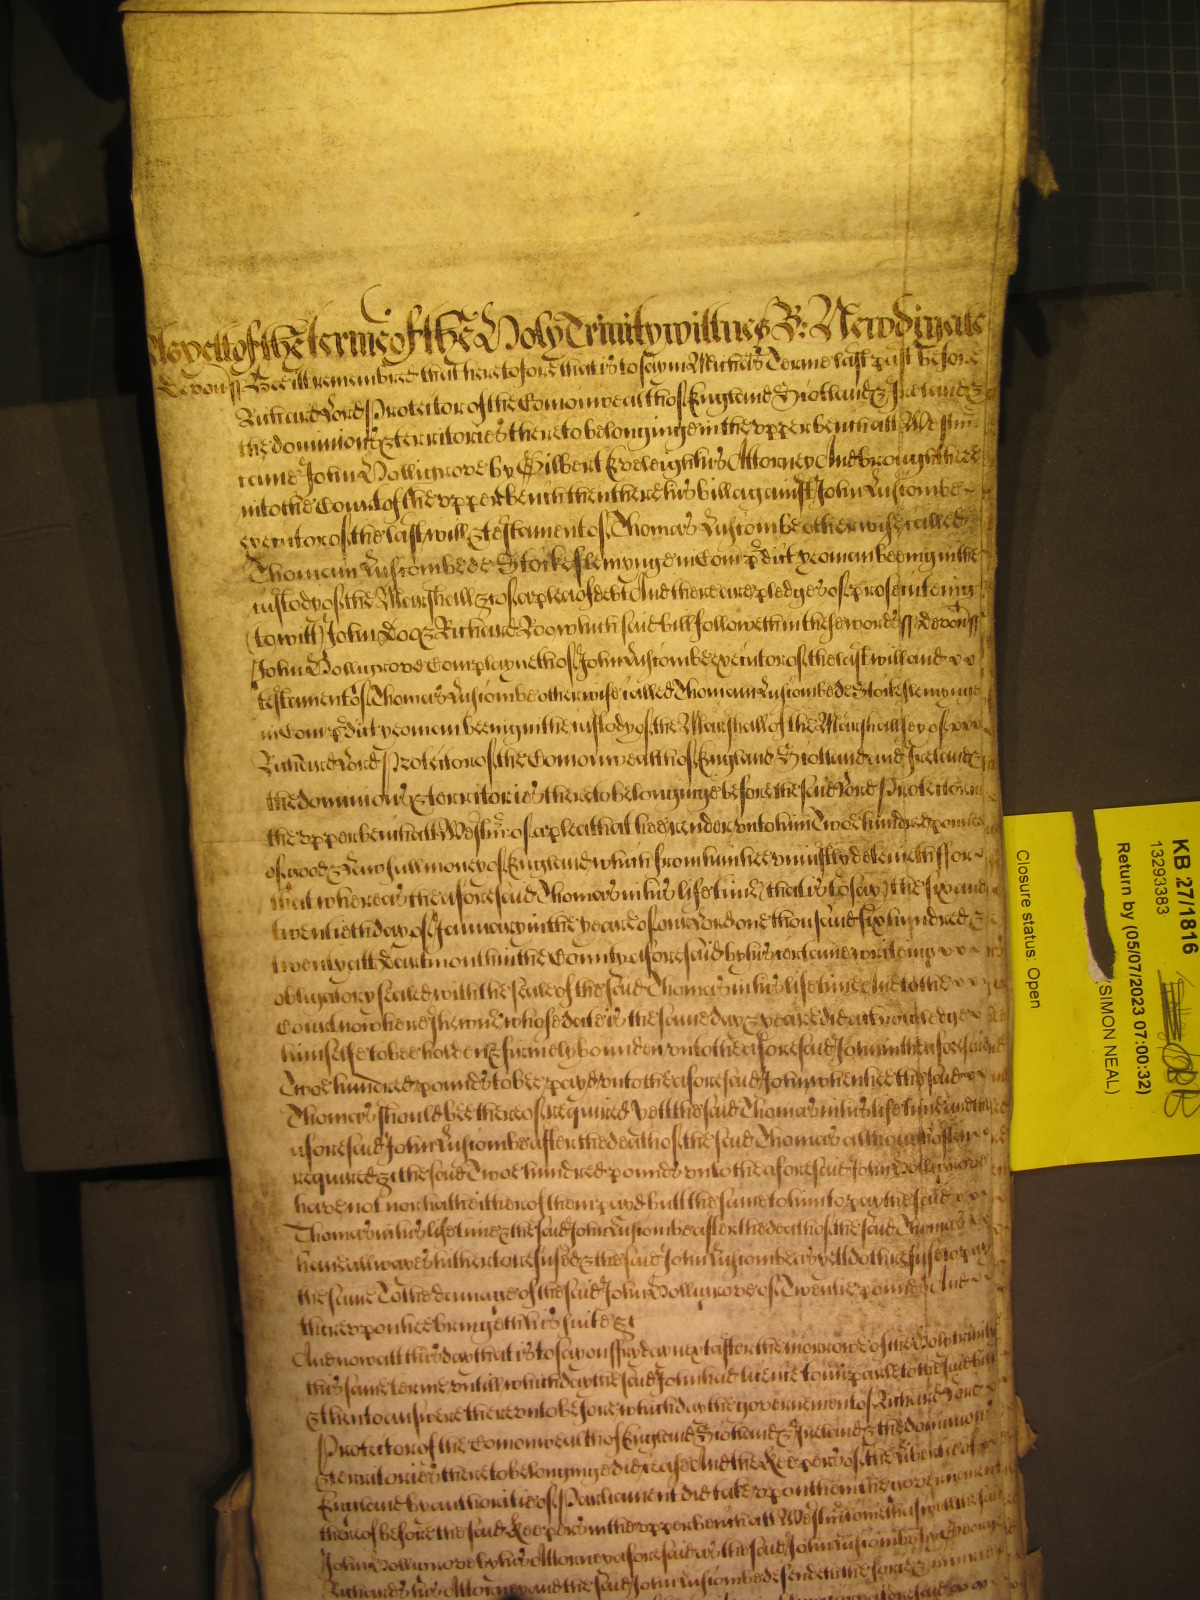 As yett of the terme of the Holy Trinity wittnes R: Newdigate
Devon ss Bee itt remembred that heretofore that is to say in Michēs Terme last past before
Richard Lord Protector of the Comonwealth of England Scotland & Ireland &
the dominions & territories thereto belonginge in the upper bench att Westmr
came John Holligrove by Gilbert Eveleigh his Attorney And brought here
into the Court of the upper bench then there his bill against John Luscombe
executor of the last will & testament of Thomas Luscombe otherwise called
Thomam Luscombe de Stockeflemynge in Com pdict yeoman beeing in the
custody of the Marshall &c of a plea of debt And there are pledges of prosecuteing
(to witt) John Doo & Richard Roo which said bill followeth in these words ss Devon ss
John Holligrove Complayneth of John Luscombe executor of the last will and
testament of Thomas Luscombe otherwise called Thomam Luscombe de Stockeflemynge
in Com pdict yeoman beeing in the custody of the Marshall of the Marshallsey of
Richard Lord Protector of the Comonwealth of England Scotland and Ireland &
the dominions & territories thereto belonginge before the said Lord Protector in
the upper bench att Westmr of a plea that hee render unto him Twoe hundred pounds
of good & lawfull money of England which from him hee uniustly deteineth For
that whereas the aforesaid Thomas in his life time (that is to say) the six and
twentieth day of January in the yeare of our Lord one thousand six hundred &
twenty att Dartmouth in the County aforesaid by his certaine writeing
obligatory sealed with the seale of the said Thomas in his life time And to the
Court now here shewne whose date is the same day & yeare did acknowledge
himselfe to bee holden & firmely bounden unto the aforesaid John in the aforesaid
Twoe hundred pounds to bee payd unto the aforesaid John when hee the said
Thomas should bee thereof required Yett the said Thomas in his life time and the
aforesaid John Luscombe after the death of the said Thomas although often
required &c the said Twoe hundred pounds unto the aforesaid John Holligrove
have not nor hath either of them payd butt the same to him to pay the said
Thomas in his life time & the said John Luscombe after the death of the said Thomas
have allwayes hitherto refused & the said John Luscombe as yett doth refuse to pay
the same To the damage of the said John Holligrove of Twentie pounds And
thereupon hee bringeth his suite &c
And now att this day that is to say on Fryday next after the morrowe of the Holy Trinity
this same terme untill which day the said John had licence to imparle to the said bill
& then to answere thereunto before which day the governement of Richard Lord
Protector of the Comonwealth of England Scotland & Ireland & the dominions
& territories thereto belonginge did cease And the Keepers of the Libertie of
England by authoritie of Parliament did take upon them the governement
thereof before the said Keepers in the upper bench att Westmr cometh aswell the said
John Holligrove by his Attorney aforesaid as the said John Luscombe by George
Richards his Attorney and the said John Luscombe defendeth the force &
KB 27/1816
13293383
Return by (05/07/2023 07:00:32)
(SIMON NEAL)
Closure status: Open